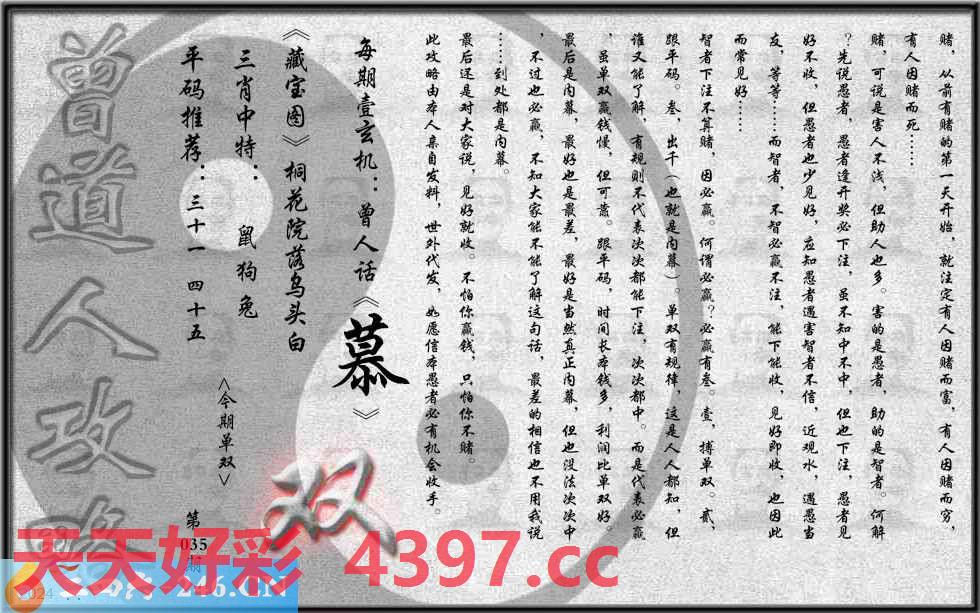 赌，从前有赌的第一天开始，就注定有人因赌而富，有人因赌而穷，
有人因赌而死……
赌，可说是害人不浅，但助人也多。害的是愚者，助的是智者。何解
？先说愚者，愚者逢开奖必下注，虽不知中不中，但也下注，愚者见
好不收，但愚者也少见好，应知愚者遇害智者不信，近观水，遇愚当
友，等等……而智者，不智必赢不注，能下能收，见好即收，也因此
而常见好……
智者下注不算赌，因必赢。何谓必赢？必赢有叁。壹，搏单双。贰，
跟平码。叁，出千（也就是内幕）。单双有规律，这是人人都知，但
谁又能了解，有规则不代表次次都能下注，次次都中。而是代表必赢
，虽单双赢钱慢，但可靠。跟平码，时间长本钱多，利润比单双好。
最后是内幕，最好也是最差，最好是当然真正内幕，但也没法次次中
，不过也必赢，不知大家能不能了解这句话，最差的相信也不用我说
……到处都是内幕。
最后还是对大家说，见好就收。不怕你赢钱，只怕你不赌。
此攻略由本人亲自发料，世外代发，如愿信本愚者必有机会收手。
每期壹玄机：曾人话《慕》
《藏宝图》桐花院落乌头白
三肖中特：鼠 狗 兔
平码推荐：三十一 四十五
<今期单双>
双
第
035
期
曾道人攻略
天天好彩 4397.cc
246.CN
2024